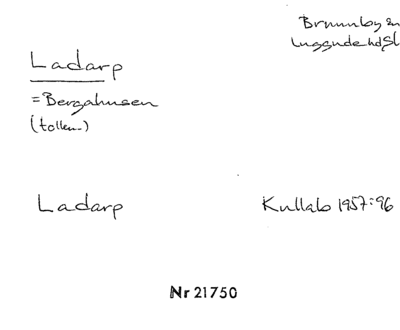 Brunnby sn
Luggude hd Sk
Ladarp
= Bergahusen
(tollen)
Ladarp
Kullabo 1957:96
Nr 21750